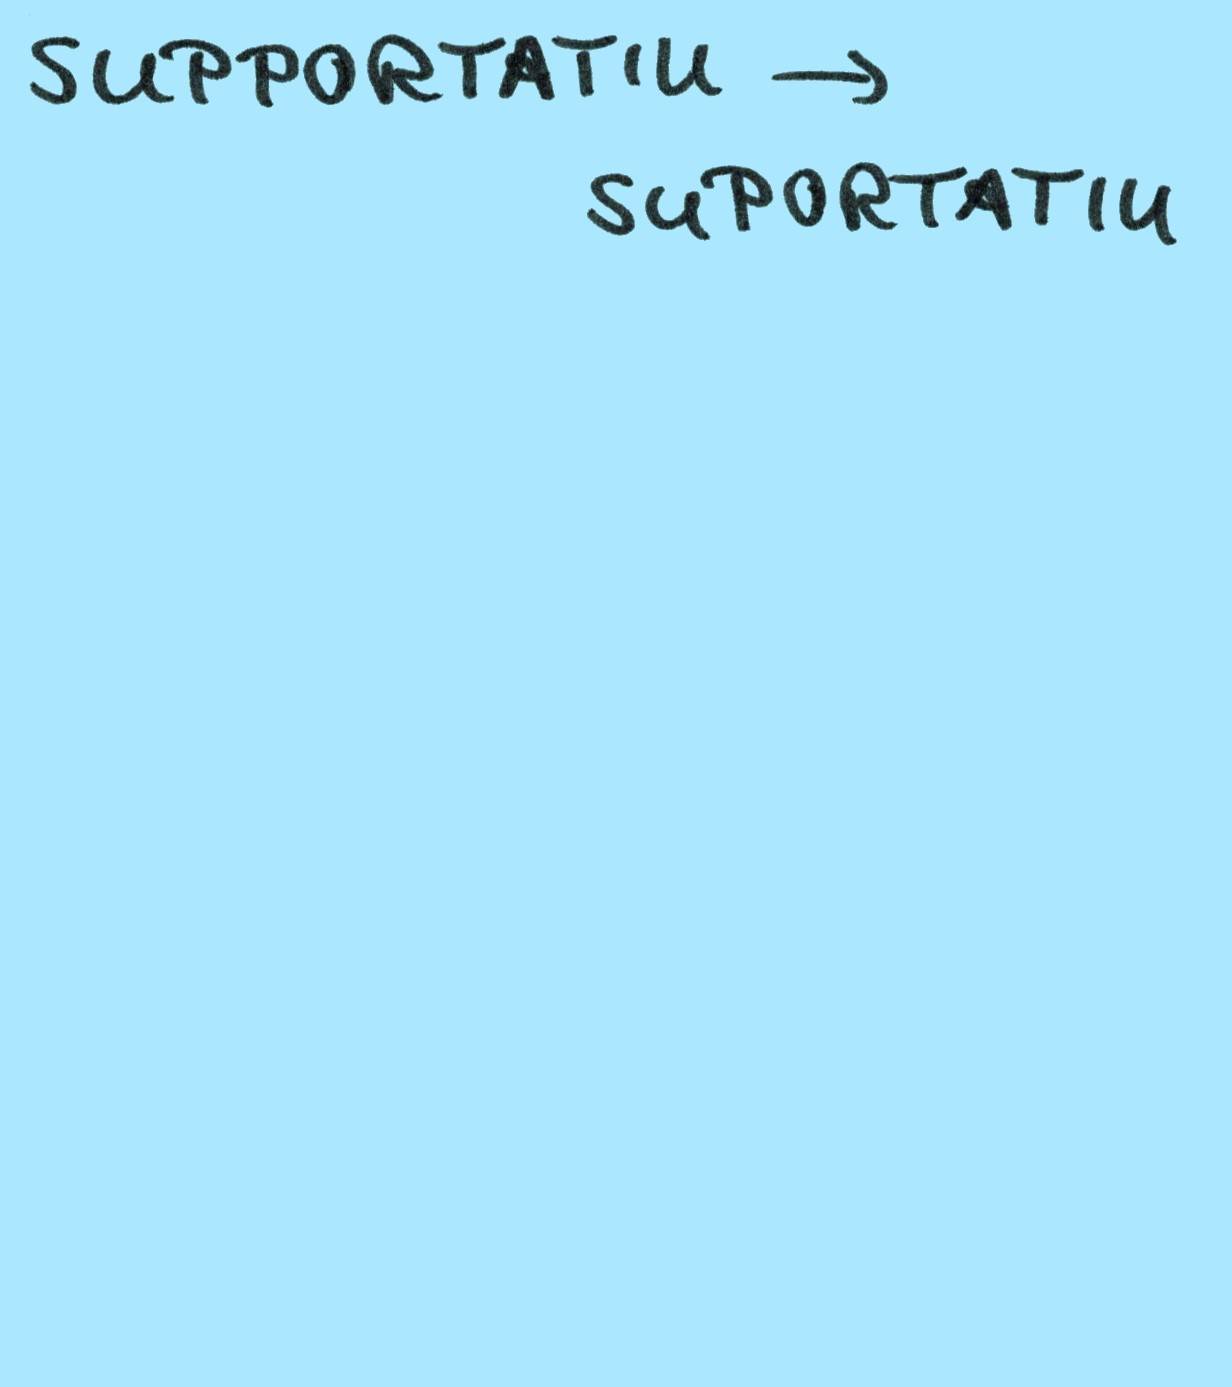 SUPPORTATIU →
SUPORTATIU